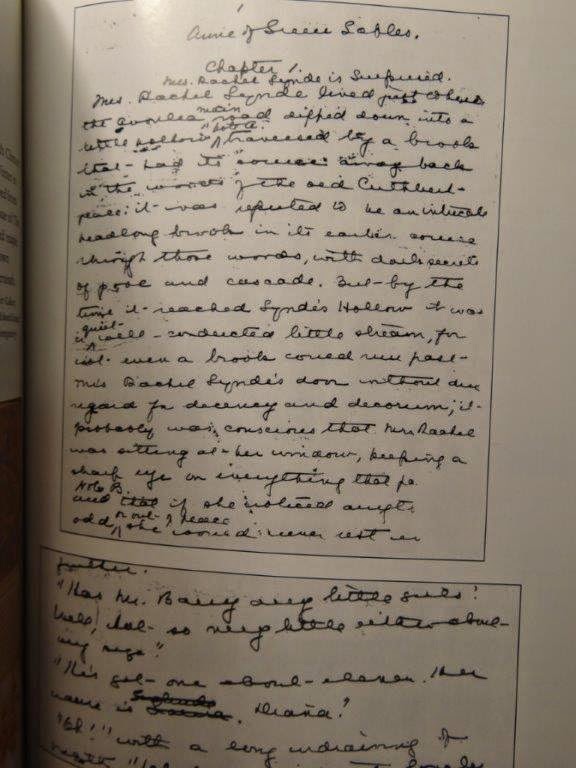 Anne of Green Gables.
Chapter 1.
Mrs. Rachel Lynde is Surprised.
Mrs. Rachel Lynde lived just where
main
the Avonlea road dipped down into a
Note A.
little hollow traversed by a brook
that had its source away back
in the woods of the old Cuthbert
place: it was reputed to be an intricate
headlong brook in its earlier course
through those woods, with dark secrets
of pool and cascade. But by the
time it reached Lynde's Hollow it was
quiet
a well-conducted little stream, for
not even a brook could run past
Mrs Rachel Lynde's door without due
regard for decency and decorum; it
probably was conscious that Mrs. Rachel
was sitting at her window, keeping a
sharp eye on everything that pa
Note B.
and that if she noticed anyth
or out of place
odd she would never rest un
further.
"Has Mr. Barry any little girls?
Well, not so very little either about
my size."
"He's got one about eleven. Her
name is Diana."
"Oh!" with a long indrawing of